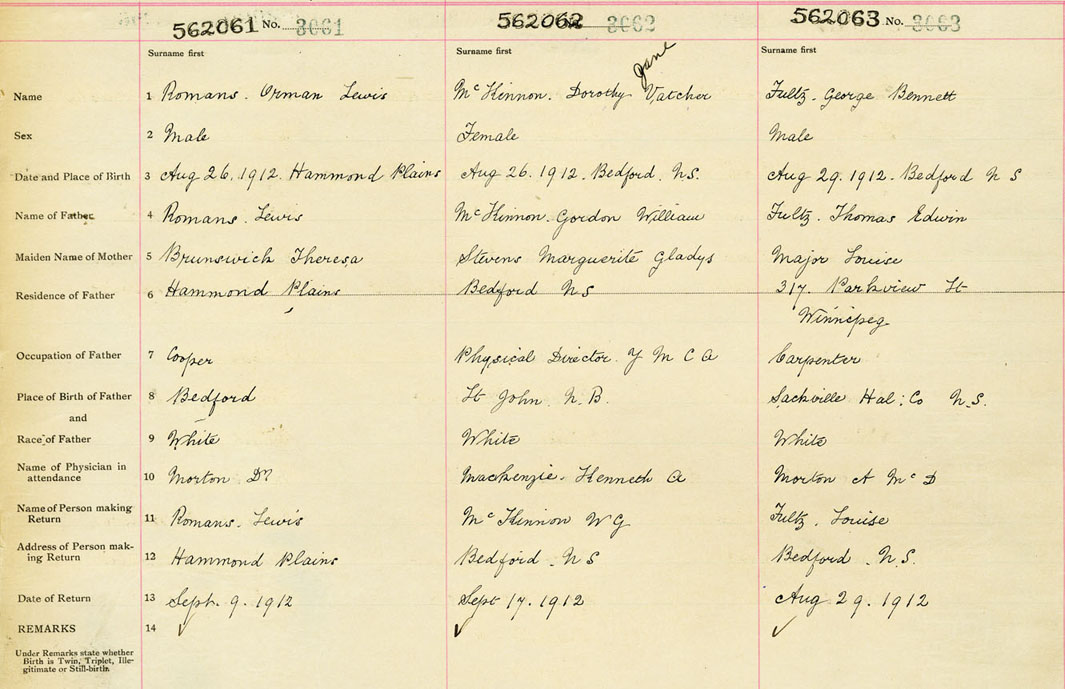 562061 No. 3061 562062 3062 562063 No. 3063
Surname first Surname first Surname first
Jane
Name 1 Romans. Orman Lewis McKinnon. Dorothy Vatcher Fultz. George Bennett
Sex 2 Male Female Male
Date and Place of Birth 3 Aug 26. 1912. Hammond Plains Aug 26. 1912. Bedford. N.S. Aug 29. 1912. Bedford N S
Name of Father 4 Romans. Lewis McKinnon. Gordon William Fultz. Thomas Edwin
Maiden Name of Mother 5 Brunswick Theresa Stevens Marguerite Gladys Major Louise
Residence of Father 6 Hammond Plains Bedford N S 317. Parkview St
Winnipeg
Occupation of Father 7 Cooper Physical Director. Y M C A Carpenter
Place of Birth of Father 8 Bedford St John. N. B. Sackville Hal: Co N.S.
and
Race of Father 9 White White White
Name of Physician in
attendance 10 Morton Dr Mackenzie. Kenneth A Morton A McD
Name of Person making
Return 11 Romans. Lewis McKinnon W G Fultz. Louise
Address of Person mak-
ing Return 12 Hammond Plains Bedford. N S Bedford. N.S.
Date of Return 13 Sept. 9. 1912 Sept 17. 1912 Aug 29. 1912
REMARKS 14
Under Remarks state whether
Birth is Twin, Triplet, Ille-
gitimate or Still-birth.